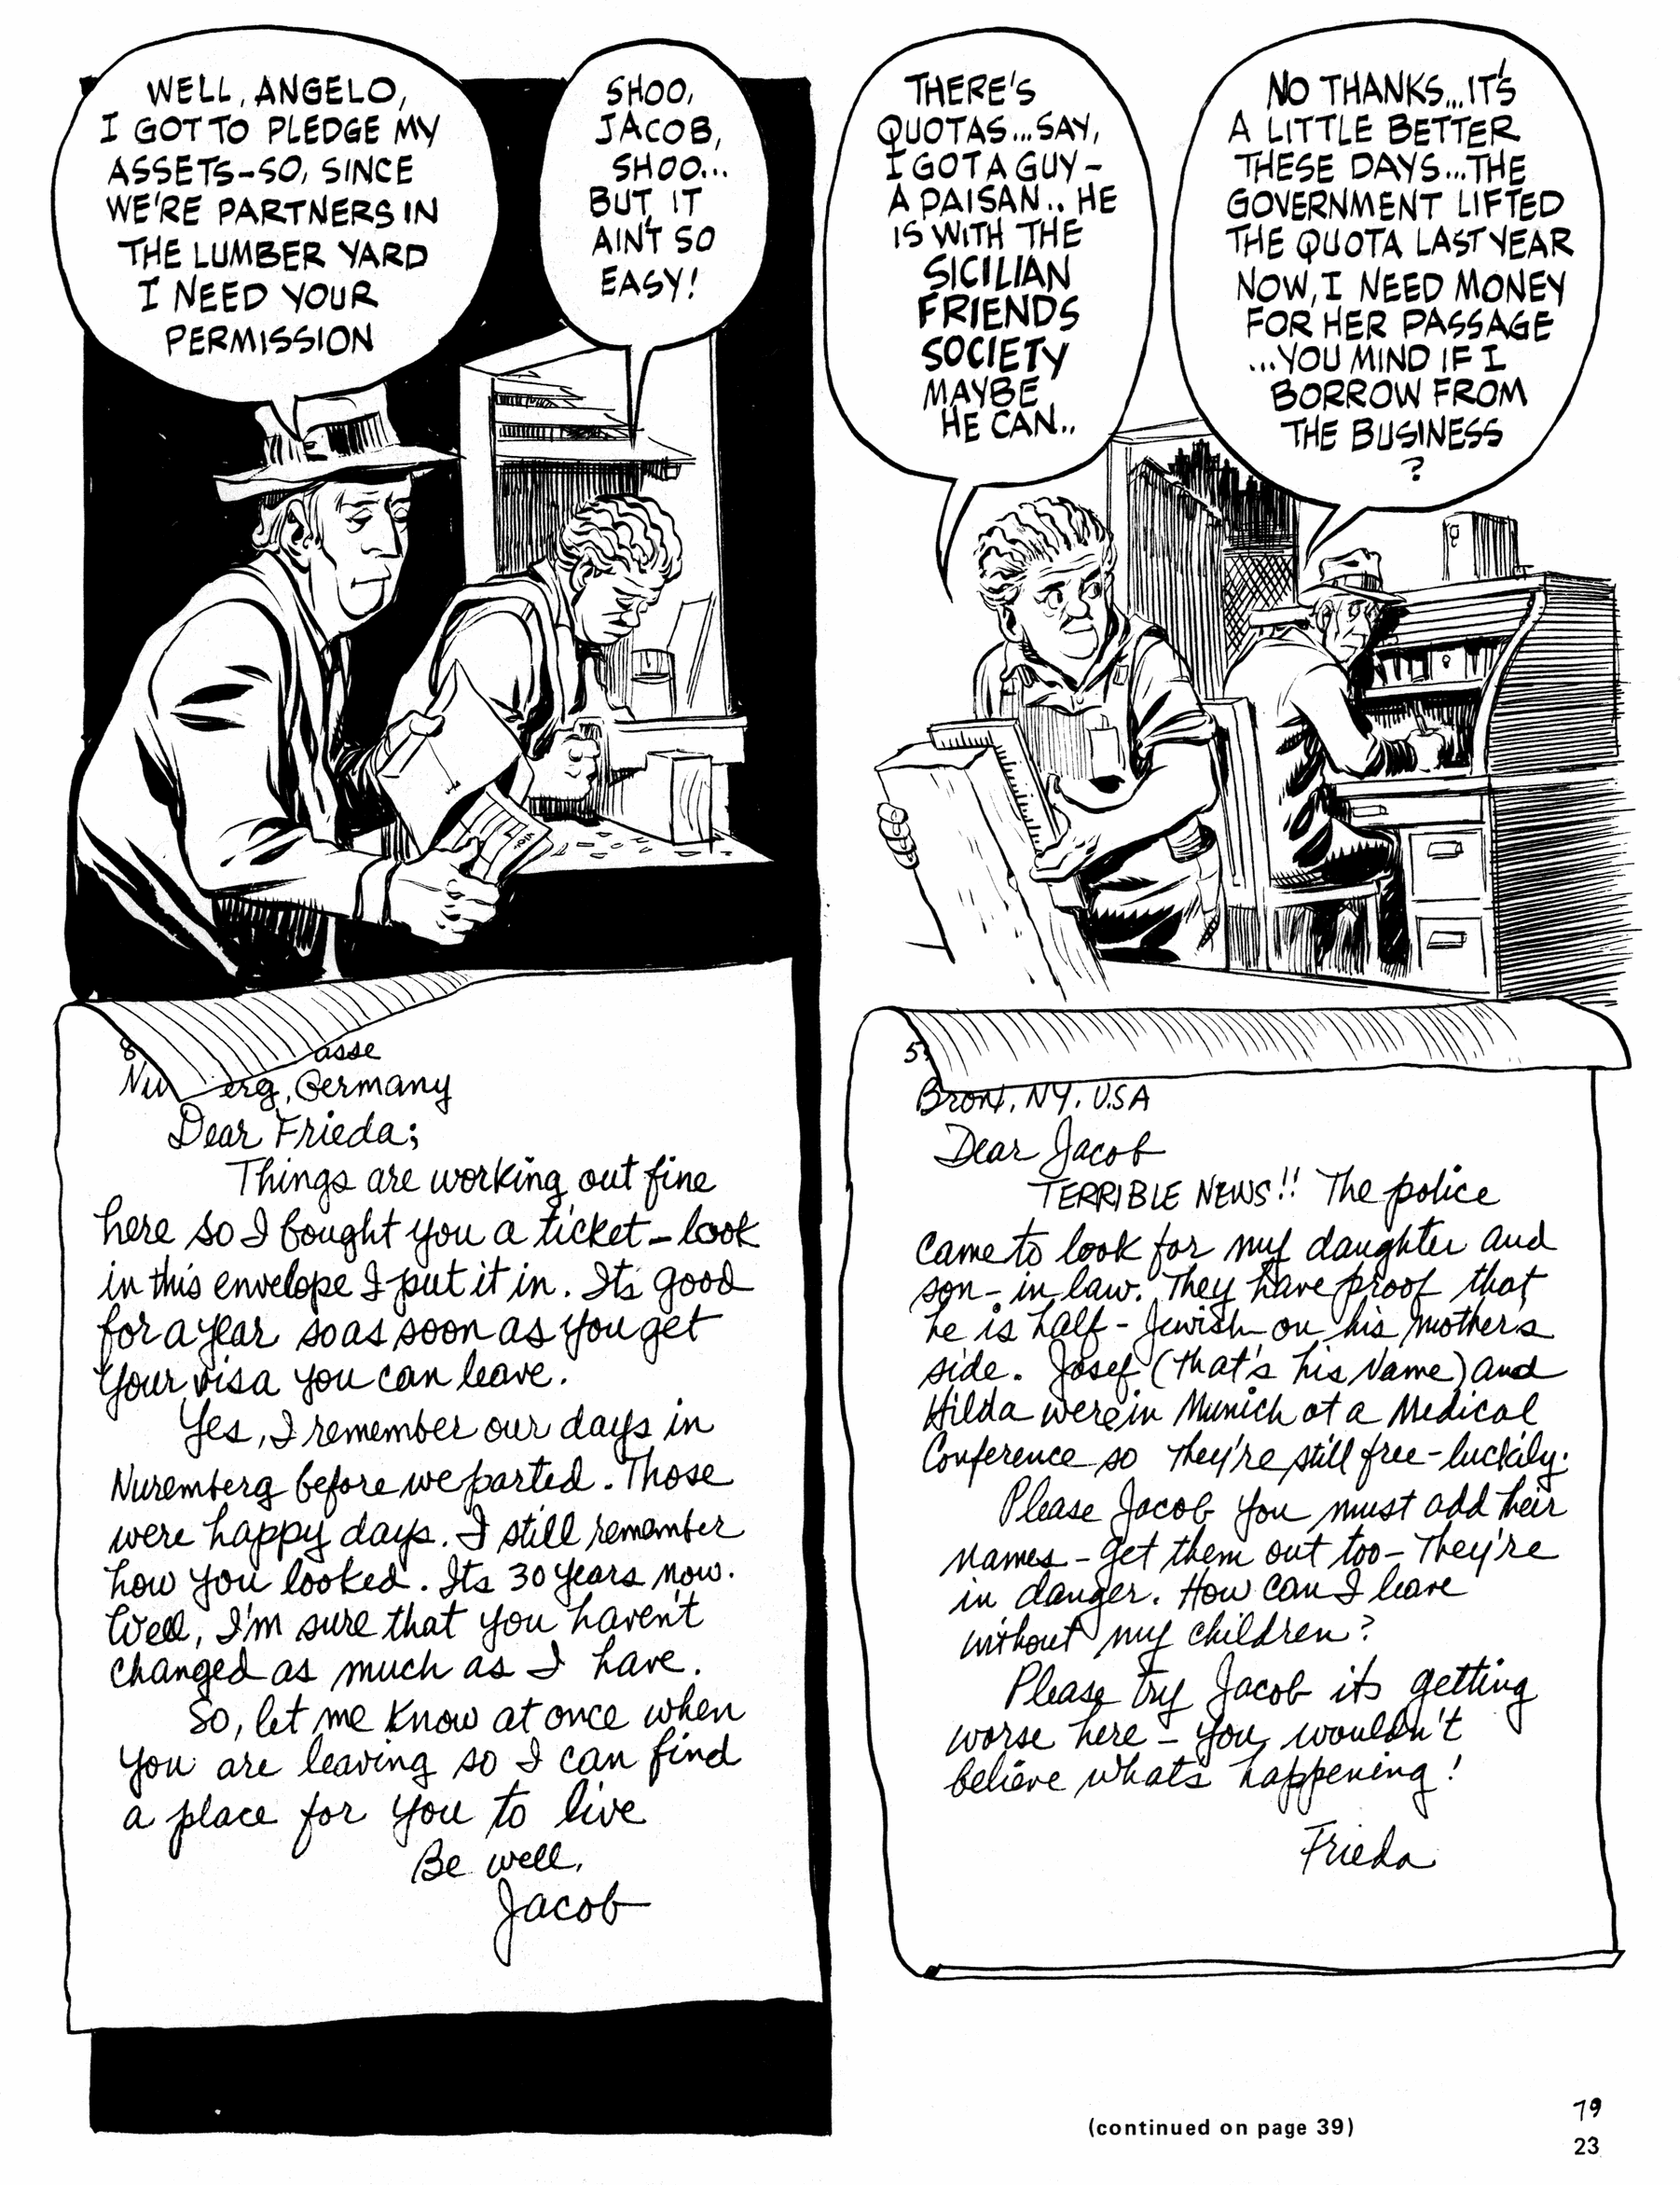 WELL, ANGELO,
I GOT TO PLEDGE MY
ASSETS-SO, SINCE
WE'RE PARTNERS IN
THE LUMBER YARD
I NEED YOUR
PERMISSION
SHOO,
JACOB,
SHOO...
BUT IT
AIN'T SO
EASY!
8 asse
Nu erg, Germany
Dear Frieda;
Things are working out fine
here so I bought you a ticket - look
in this envelope I put it in. Its good
for a year so as soon as you get
your visa you can leave.
Yes, I remember our days in
Nuremberg before we parted. Those
were happy days. I still remember
how you looked. Its 30 years now.
Well, I'm sure that you haven't
changed as much as I have.
So, let me know at once when
you are leaving so I can find
a place for you to live
Be well,
Jacob
THERE'S
QUOTAS...SAY,
I GOT A GUY-
A PAISAN.. HE
IS WITH THE
SICILIAN
FRIENDS
SOCIETY
MAYBE
HE CAN..
NO THANKS...IT'S
A LITTLE BETTER
THESE DAYS...THE
GOVERNMENT LIFTED
THE QUOTA LAST YEAR
NOW, I NEED MONEY
FOR HER PASSAGE
...YOU MIND IF I
BORROW FROM
THE BUSINESS
?
Bronx, NY. U.S.A
Dear Jacob
TERRIBLE NEWS!! The police
came to look for my daughter and
son-in law. They have proof that
he is half-Jewish on his mothers
side. Josef (that's his Name) and
Hilda were in Munich at a Medical
Conference so they're still free-luckily.
Please Jacob you must add their
names - get them out too - They're
in danger. How can I leave
without my children?
Please try Jacob its getting
worse here - you wouldn't
believe whats happening!
Frieda
(continued on page 39)
79
23